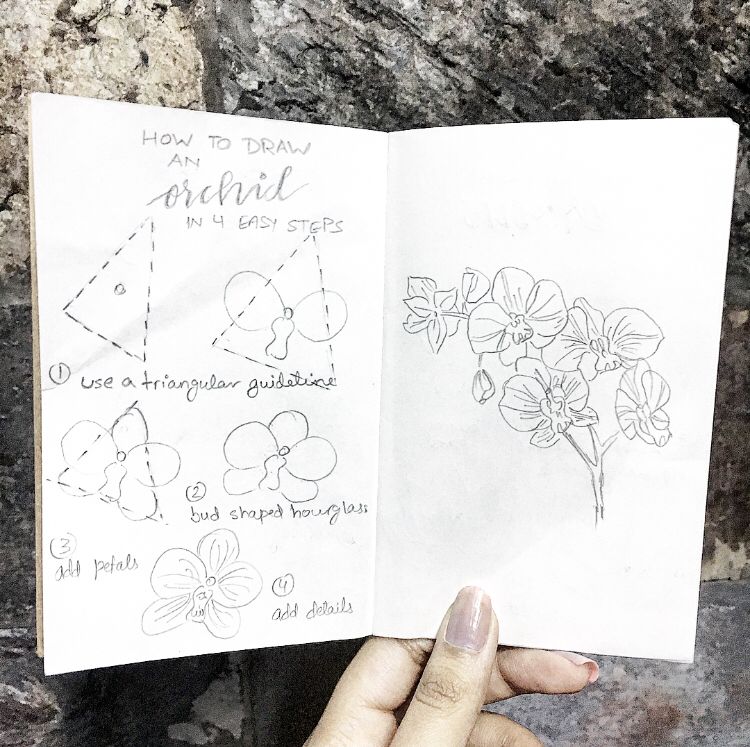 HOW TO DRAW
AN
orchid
IN 4 EASY STEPS
① use a triangular guideline
②
bud shaped hourglass
③
add petals
④
add details